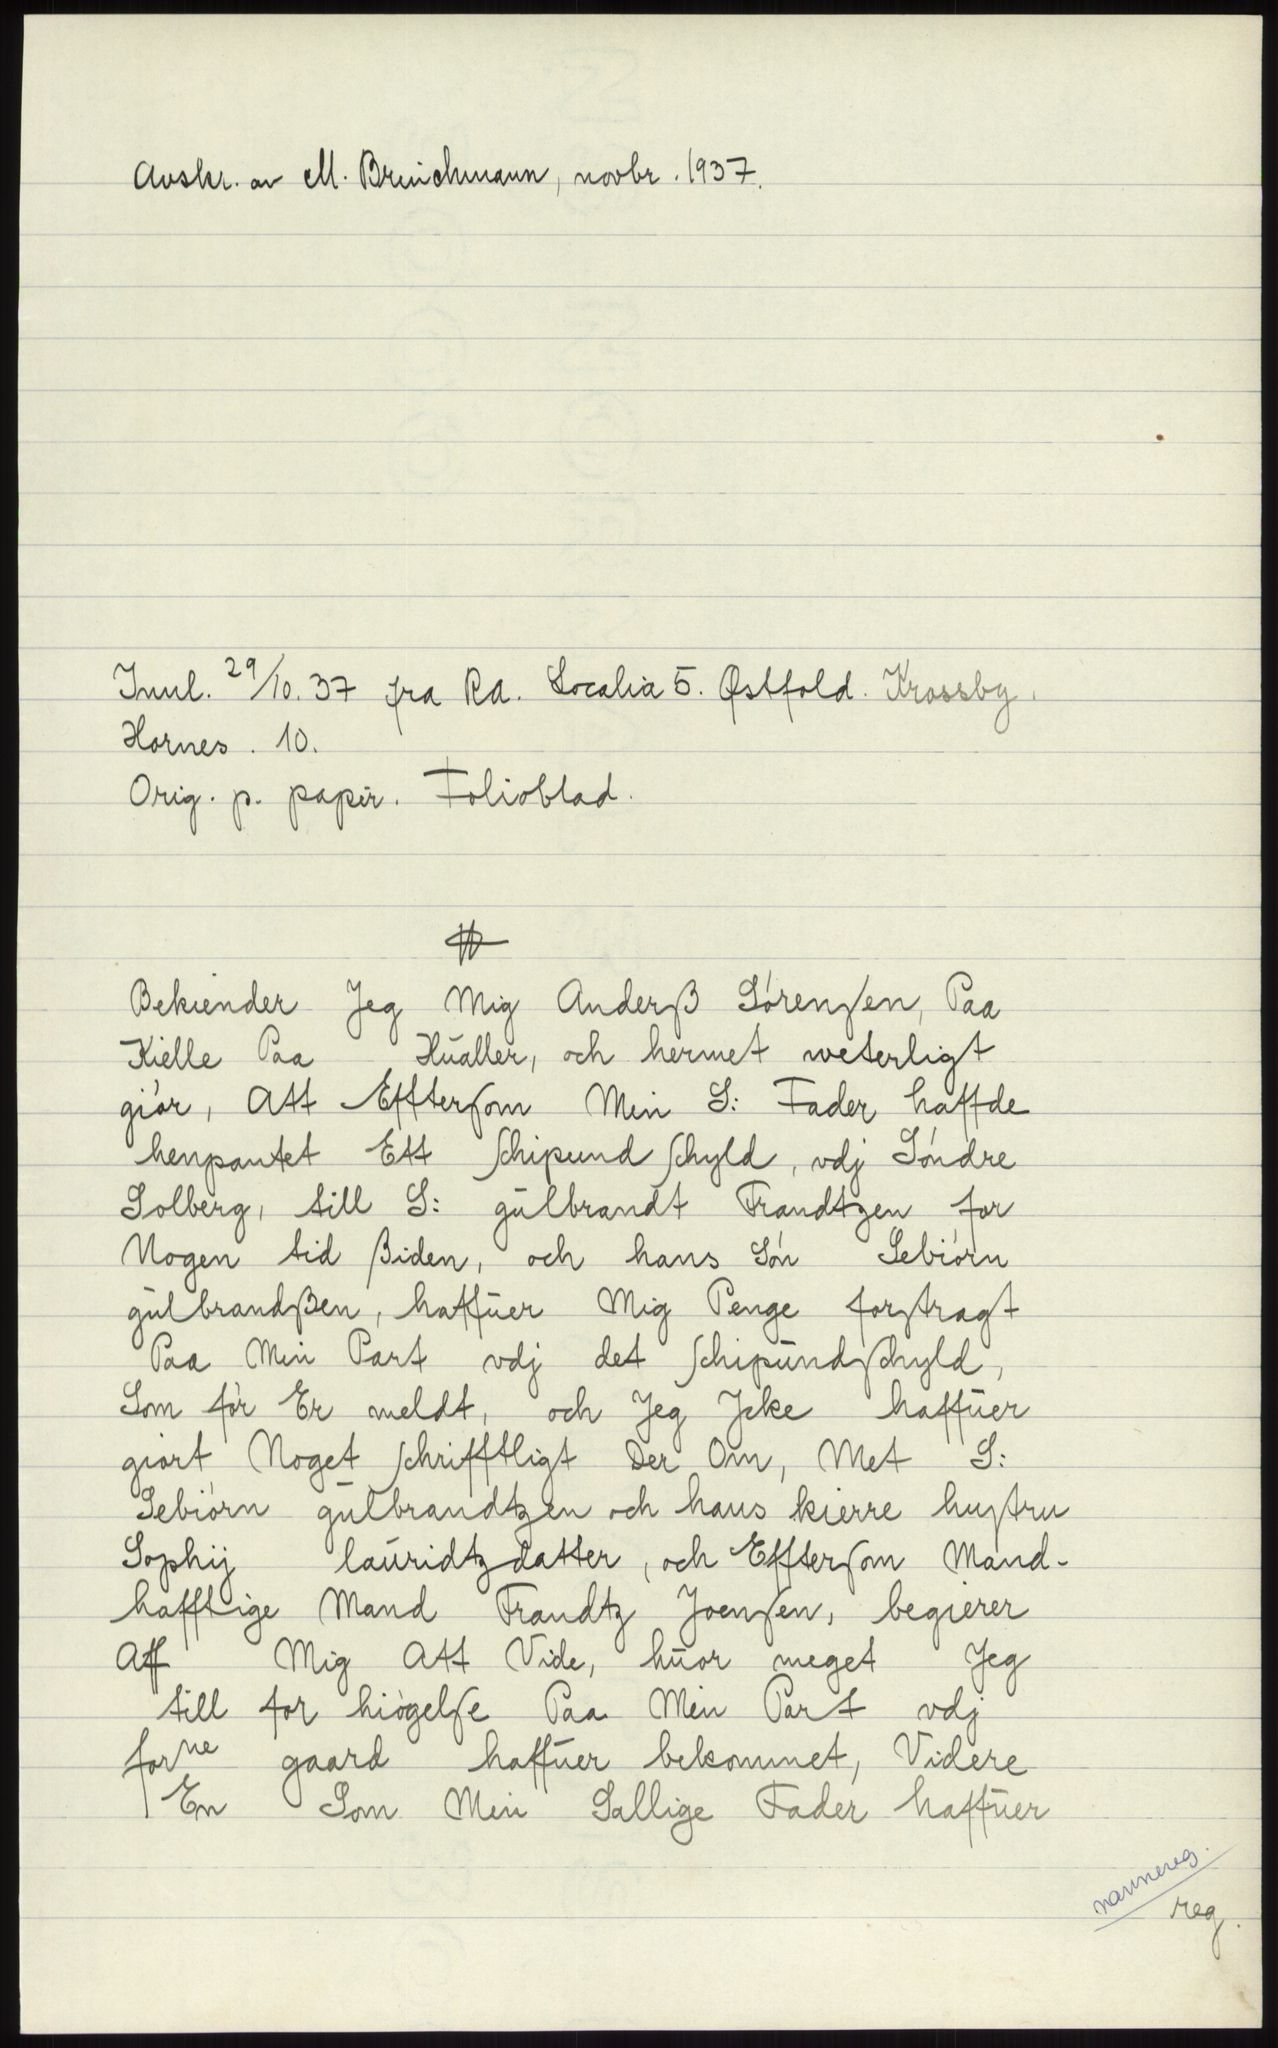 Avskr. av M. Brinchmann, novbr. 1937.
Innl. 29/10. 37 fra Rd. Localia 5. Østfold. Krossby.
Hornes. 10.
Orig. p. papir. Folioblad.
Bekiender Jeg Mig Anderß Sørenſen, Paa
Kielle Paa Hŭaller, och hermet weterligt
giør, Att Effterſom Min S: Fader haffde
henpantet Ett ſchipund ſchyld, vdj Søndre
Solberg, till S: gŭlbrandt Frandtzen for
Nogen tid ßiden, och hans Søn Sebiørn
gŭlbrandßen, haffŭer Mig Penge forſtragt
Paa Min Part vdj det ſchipŭndſchyld,
Som før Er meldt, och Jeg Jcke haffŭer
giørt Noget ſchrifftligt Der Om, Met S:
Sebiørn gŭlbrandtzen och hans kierre huſtru
Sophij laŭridtzdatter, och Effterſom Mand-
hafftige Mand Frandtz Joenſen, begierer
Aff Mig Att Vide, hŭor meget Jeg
till for hiøgelſe Paa Min Part vdj
forne gaard haffŭer bekommet, Videre
En Som Min Sallige Fader haffŭer
navnereg.
reg.